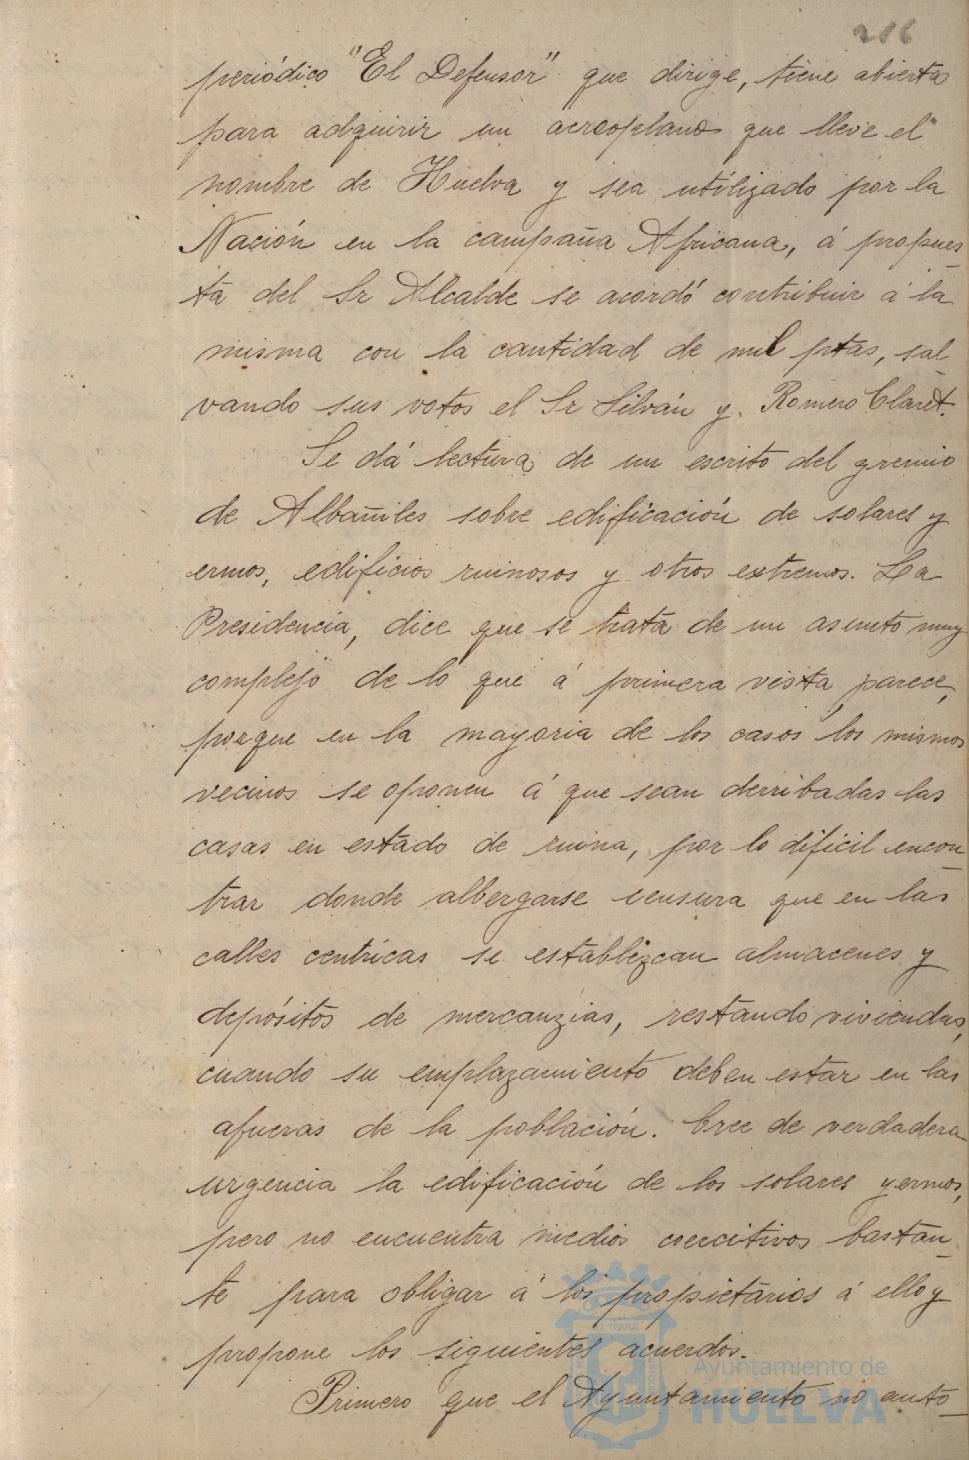 216
periódico "El Defensor" que dirige, tiene abierta
para adquirir un aereoplano que lleve el
nombre de Huelva y sea utilizado por la
Nación en la campaña Africana, á propues-
ta del Sr Alcalde se acordó contribuir á la
misma con la cantidad de mil ptas, sal
vando sus votos el Sr Silván y Romero Claret.
Se dá lectura de un escrito del gremio
de Albañiles sobre edificación de solares y
ermos, edificios ruinosos y otros extremos. La
Presidencia, dice que se trata de un asunto muy
complejo de lo que á primera vista parece,
porque en la mayoria de los casos los mismos
vecinos se oponen á que sean derribadas las
casas en estado de ruina, por lo dificil encon-
trar donde albergarse censura que en las
calles centricas se establezcan almacenes y
depósitos de mercanzias, restando viviendas,
cuando su emplazamiento deben estar en las
afueras de la población. Cree de verdadera
urgencia la edificación de los solares yermos,
pero no encuentra medios coercitivos bastan-
te para obligar á los propietarios á ello y
propone los siguientes acuerdos.
Primero que el Ayuntamiento no auto-
Ayuntamiento de
HUELVA